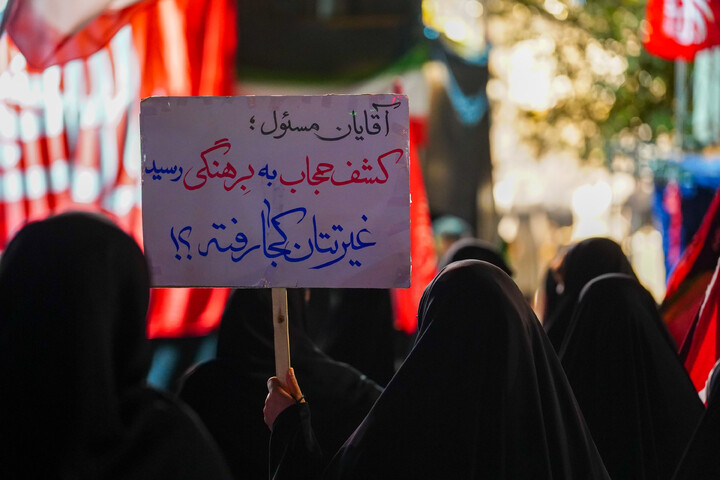 آقایان مسئول؛
کشف حجاب به بِرهنگی رسید
غیرتتان کجا رفته ؟!